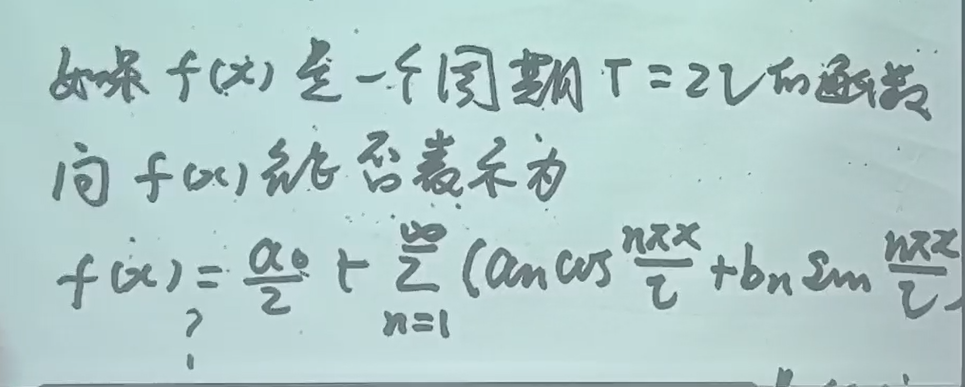 如果 f(x) 是一个周期 T=2l 的函数
问 f(x) 能否表示为
f(x) = a₀/2 + ∑_{n=1}^{∞} (aₙcos nπx/l + bₙ sin nπx/l)
?